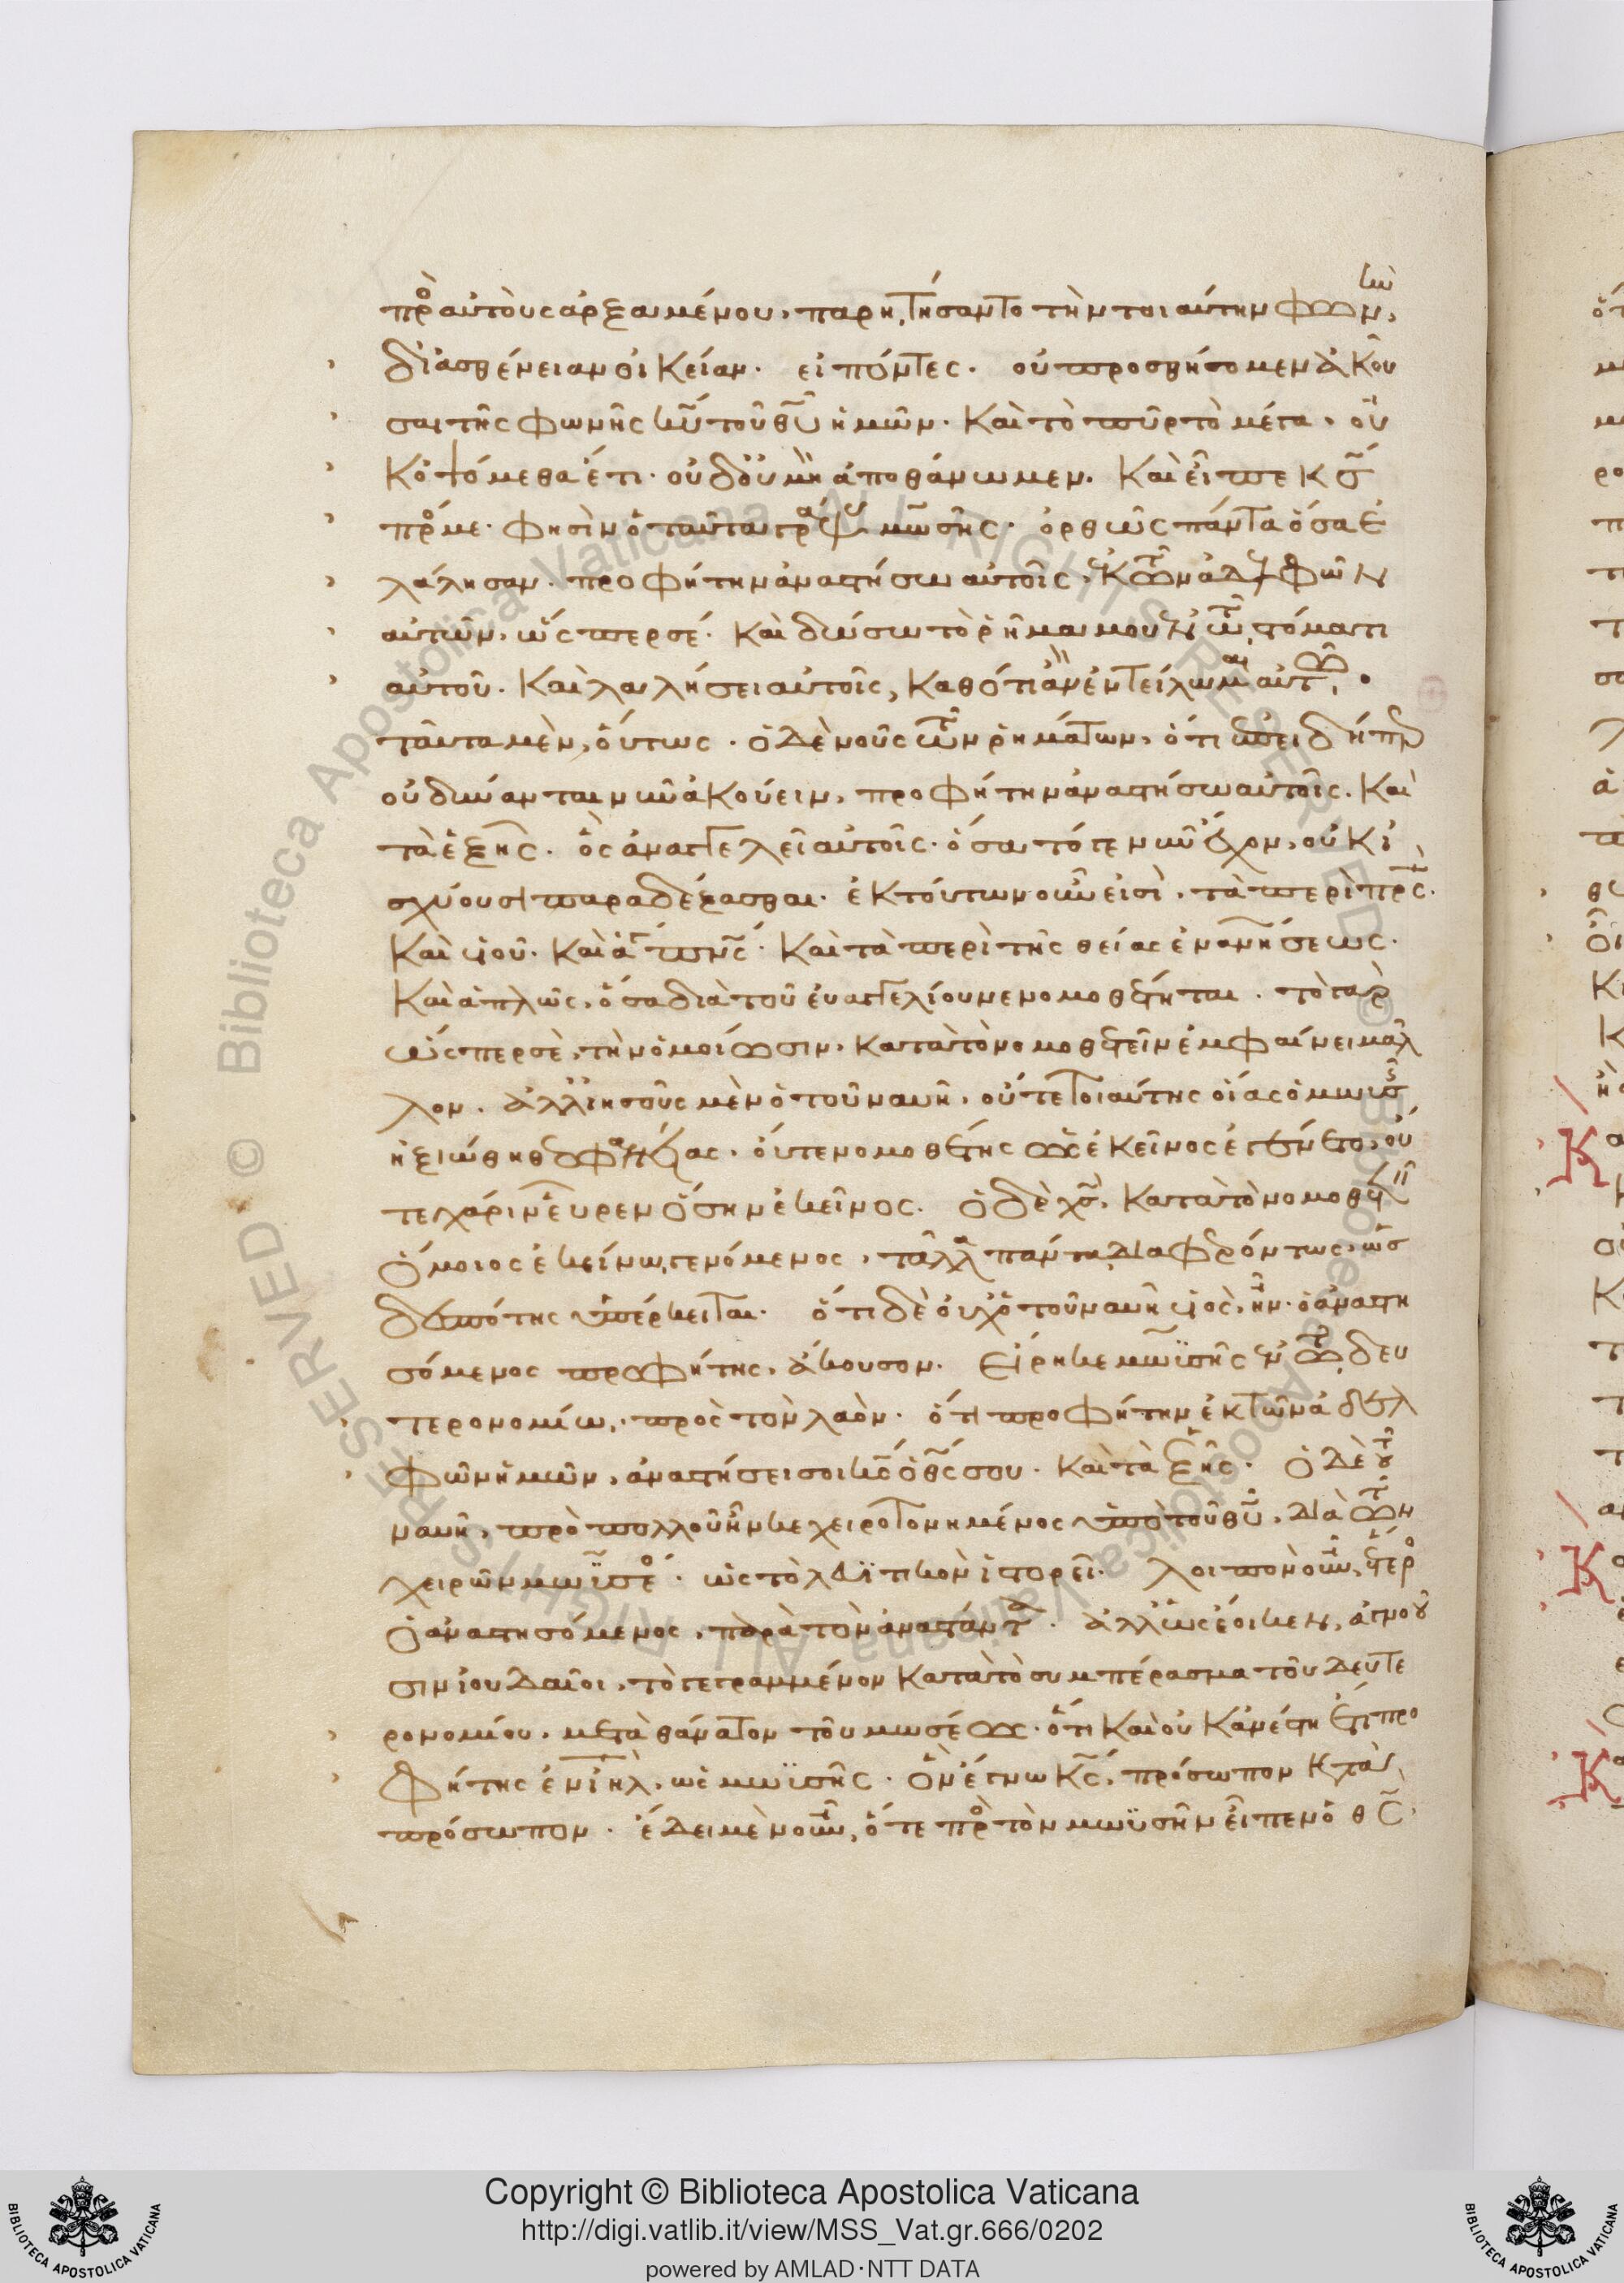 πρὸς αὐτοὺς ἀρξαμένου, παρῃτήσαντο τὴν τοιαύτην φωνὴν,
δι' ἀσθένειαν οἰκείαν. εἰπόντες. οὐ προσθήσομεν ἀκοῦ
σαι τῆς φωνῆς κυ τοῦ θυ ἡμῶν. Καὶ τὸ πῦρ τὸ μέγα, οὐ
κ ὀψόμεθα ἔτι. οὐδ' οὐ μὴ ἀποθάνωμεν. Καὶ εἶπε κς
πρός με. φησὶν ὁ ταῦτα γράψας μωσῆς. ὀρθῶς πάντα ὅσα ἐ
λάλησαν. προφήτην ἀναστήσω αὐτοῖς, ἐκ τῶν ἀδελφῶν
αὐτῶν, ὥσπερ σέ. Καὶ δώσω τὸ ῥῆμα μου ἐν τῷ στόματι
αὐτοῦ. Καὶ λαλήσει αὐτοῖς, καθότι ἂν ἐντείλωμαι αὐτῷ.
ταῦτα μὲν, οὕτως. ὁ δὲ νοῦς τῶν ῥημάτων, ὅτι ἐπειδήπερ
οὐ δύνανται νῦν ἀκούειν, προφήτην ἀναστήσω αὐτοῖς. Καὶ
τὰ ἑξῆς. ὃς ἀναγγελεῖ αὐτοῖς. ὅσα τότε νῦν ἔχον, οὐκ ἰ
σχύουσι παραδέξασθαι. ἐκ τούτων οὖν εἰσὶ, τὰ περὶ πρς.
Καὶ υἱοῦ. Καὶ ἁγίου πνς. Καὶ τὰ περὶ τῆς θείας ἐνανθρωπήσεως.
Καὶ ἁπλῶς, ὅσα διὰ τοῦ εὐαγγελίου νενομοθέτηται. τὸ γὰρ
ὥσπερ σὲ, τὴν ὁμοίωσιν, κατὰ τὸ νομοθετεῖν ἐμφαίνει μᾶλ
λον. ἀλλ' ἰησοῦς μὲν ὁ τοῦ ναυῆ, οὔτε τοιαύτης οἵας ὁ μωϋσῆς
ἠξιώθη θεοφανείας. οὔτε νομοθέτης ὡς ἐκεῖνος ἐγένετο, οὔ
τε χάριν εὗρεν ὅσην ἐκεῖνος. ὁ δὲ χς, κατὰ τὸ νομοθετεῖν
ὅμοιος ἐκείνῳ γενόμενος, τἄλλα πάντα διαφερόντως, ὡς
δεσπότης ὑπέρκειται. ὅτι δὲ οὐχ ὁ τοῦ ναυῆ υἱὸς, ἦν ὁ ἀναστη
σόμενος προφήτης, ἄκουσον. Εἴρηκε μωϋσῆς ἐν τῷ δευ
τερονομίῳ, πρὸς τὸν λαὸν. ὅτι προφήτην ἐκ τῶν ἀδελ
φῶν ἡμῶν, ἀναστήσει σοι κς ὁ θς σου. Καὶ τὰ ἑξῆς. ὁ δὲ τοῦ
ναυῆ, πρὸ πολλοῦ ἦν κεχειροτονημένος ὑπὸ τοῦ θυ, διὰ τῶν
χειρῶν μωϋσέος. ὡς τὸ λευϊτικὸν ἱστορεῖ. λοιπὸν οὖν, ἕτερος
ὁ ἀναστησόμενος, παρὰ τὸν ἀναστάντα. ἀλλ' ὡς ἔοικεν, ἀγνοοῦ
σιν ἰουδαῖοι, τὸ γεγραμμένον κατὰ τὸ συμπέρασμα τοῦ δευτε
ρονομίου, μετὰ θάνατον τοῦ μωσέως. ὅτι καὶ οὐκ ἀνέστη ἔτι προ
φήτης ἐν ιηλ, ὡς μωϋσῆς. ὃν ἔγνω κς, πρόσωπον κατὰ
πρόσωπον. ἔδει μὲν οὖν, ὅτε πρὸς τὸν μωϋσῆν εἶπεν ὁ θς.
Copyright © Biblioteca Apostolica Vaticana
http://digi.vatlib.it/view/MSS_Vat.gr.666/0202
powered by AMLAD·NTT DATA